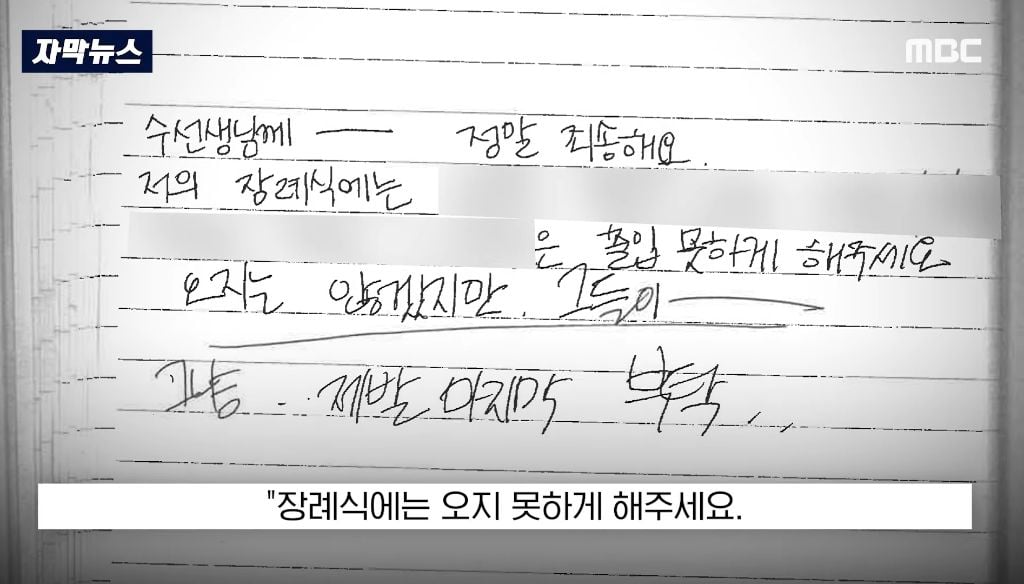 자막뉴스
MBC
수선생님께 — 정말 죄송해요.
저의 장례식에는
은 출입 못하게 해주세요
오지는 않겠지만. 그들이
그냥.. 제발 마지막 부탁..
"장례식에는 오지 못하게 해주세요.